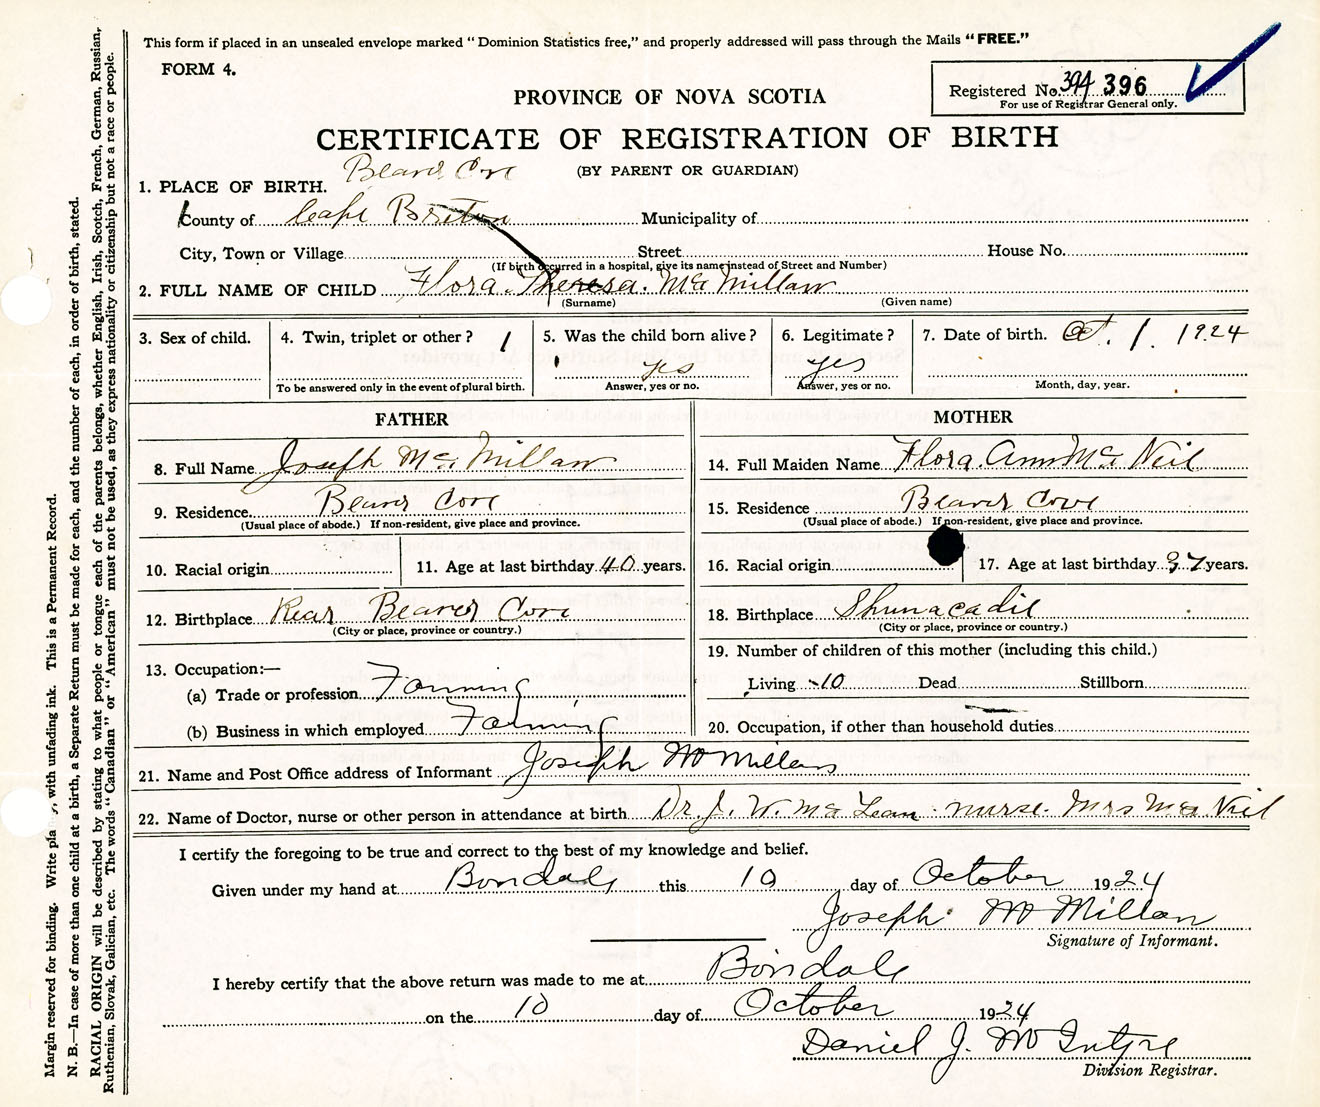 This form if placed in an unsealed envelope marked "Dominion Statistics free," and properly addressed will pass through the Mails "FREE."
FORM 4.
Registered No. 394 396
For use of Registrar General only.
PROVINCE OF NOVA SCOTIA
CERTIFICATE OF REGISTRATION OF BIRTH
(BY PARENT OR GUARDIAN)
Beaver Cove
1. PLACE OF BIRTH.
County of Cape Breton Municipality of
City, Town or Village Street House No.
(If birth occurred in a hospital, give its name instead of Street and Number)
2. FULL NAME OF CHILD Flora Theresa Mc Millan
(Surname) (Given name)
3. Sex of child. 4. Twin, triplet or other? 1 5. Was the child born alive? 6. Legitimate? 7. Date of birth. Oct. 1. 1924
yes yes
To be answered only in the event of plural birth. Answer, yes or no. Answer, yes or no. Month, day, year.
FATHER
8. Full Name Joseph Mc Millan
9. Residence Beaver Cove
(Usual place of abode.) If non-resident, give place and province.
10. Racial origin 11. Age at last birthday 40 years.
12. Birthplace Rear Beaver Cove
(City or place, province or country.)
13. Occupation:—
(a) Trade or profession Farming
(b) Business in which employed Farming
MOTHER
14. Full Maiden Name Flora Ann Mc Neil
15. Residence Beaver Cove
(Usual place of abode.) If non-resident, give place and province.
16. Racial origin 17. Age at last birthday 37 years.
18. Birthplace Shunacadie
(City or place, province or country.)
19. Number of children of this mother (including this child.)
Living 10 Dead Stillborn
20. Occupation, if other than household duties
21. Name and Post Office address of Informant Joseph McMillan
22. Name of Doctor, nurse or other person in attendance at birth Dr. J. W. Mc Lean nurse. Mrs Mc Neil
I certify the foregoing to be true and correct to the best of my knowledge and belief.
Given under my hand at Boisdale this 10 day of October 1924
Joseph McMillan
Signature of Informant.
I hereby certify that the above return was made to me at Boisdale
on the 10 day of October 1924
Daniel J. McIntyre
Division Registrar.
Margin reserved for binding. Write plainly, with unfading ink. This is a Permanent Record.
N. B.—In case of more than one child at a birth, a Separate Return must be made for each, and the number of each, in order of birth, stated.
RACIAL ORIGIN will be described by stating to what people or tongue each of the parents belongs, whether English, Irish, Scotch, French, German, Russian,
Ruthenian, Slovak, Galician, etc. The words "Canadian" or "American" must not be used, as they express nationality or citizenship but not a race or people.